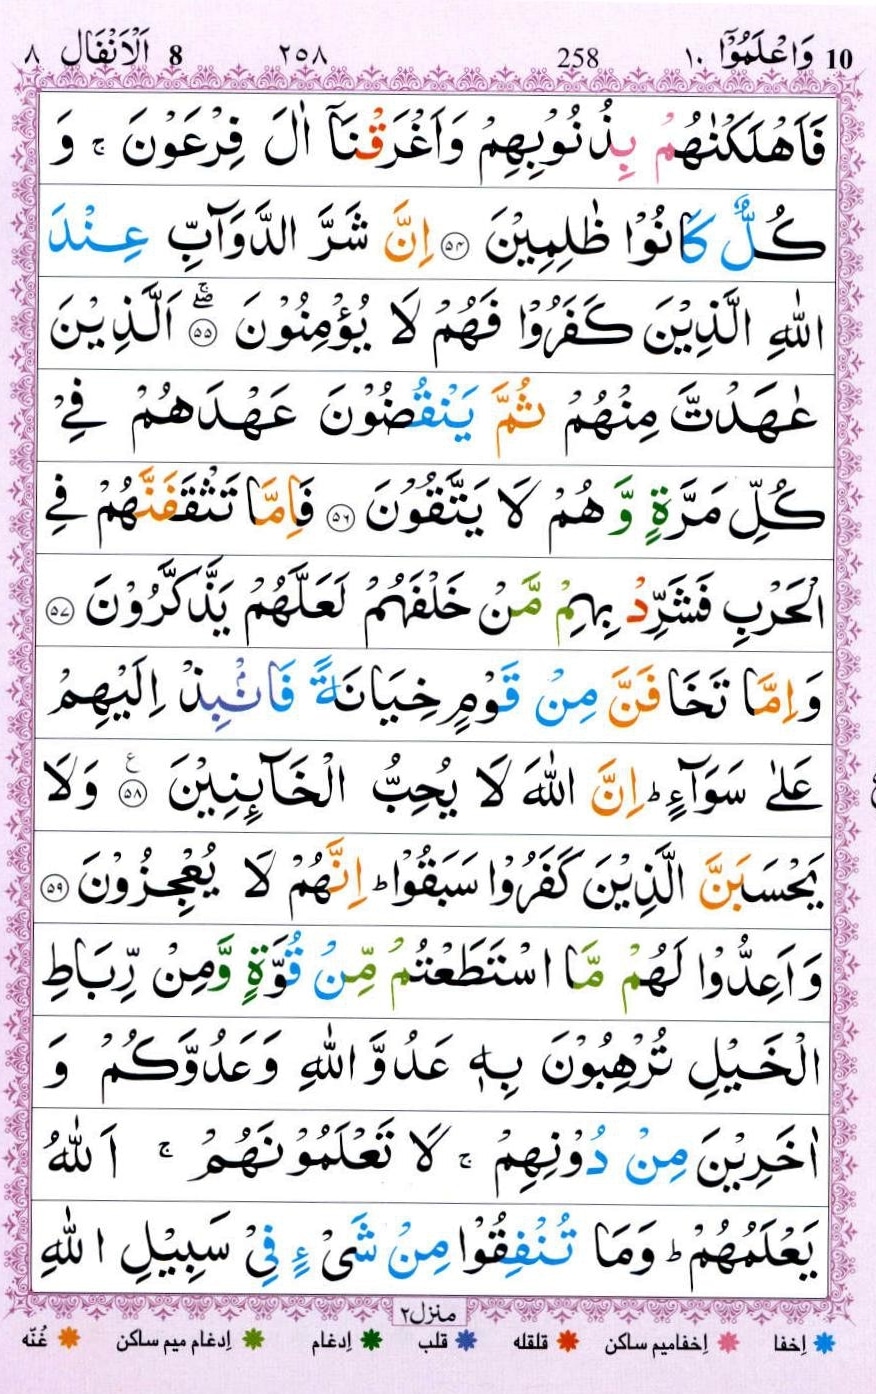 10 وَاعْلَمُوْۤا ۱۰ 258 ۲۵۸ 8 اَلْاَنْفَال ۸
فَاَهْلَكْنٰهُمْ بِذُنُوْبِهِمْ وَاَغْرَقْنَاۤ اٰلَ فِرْعَوْنَ ۚ وَ
كُلٌّ كَانُوْا ظٰلِمِيْنَ ۵۴ اِنَّ شَرَّ الدَّوَآبِّ عِنْدَ
اللّٰهِ الَّذِيْنَ كَفَرُوْا فَهُمْ لَا يُؤْمِنُوْنَ ۖۚ ۵۵ اَلَّذِيْنَ
عٰهَدْتَّ مِنْهُمْ ثُمَّ يَنْقُضُوْنَ عَهْدَهُمْ فِيْ
كُلِّ مَرَّةٍ وَّهُمْ لَا يَتَّقُوْنَ ۵۶ فَاِمَّا تَثْقَفَنَّهُمْ فِي
الْحَرْبِ فَشَرِّدْ بِهِمْ مَّنْ خَلْفَهُمْ لَعَلَّهُمْ يَذَّكَّرُوْنَ ۵۷
وَاِمَّا تَخَافَنَّ مِنْ قَوْمٍ خِيَانَةً فَانْۢبِذْ اِلَيْهِمْ
عَلٰى سَوَآءٍ ؕ اِنَّ اللّٰهَ لَا يُحِبُّ الْخَآئِنِيْنَ ع ۵۸ وَلَا
يَحْسَبَنَّ الَّذِيْنَ كَفَرُوْا سَبَقُوْا ؕ اِنَّهُمْ لَا يُعْجِزُوْنَ ۵۹
وَاَعِدُّوْا لَهُمْ مَّا اسْتَطَعْتُمْ مِّنْ قُوَّةٍ وَّمِنْ رِّبَاطِ
الْخَيْلِ تُرْهِبُوْنَ بِهٖ عَدُوَّ اللّٰهِ وَعَدُوَّكُمْ وَ
اٰخَرِيْنَ مِنْ دُوْنِهِمْ ۚ لَا تَعْلَمُوْنَهُمْ ۚ اَللّٰهُ
يَعْلَمُهُمْ ؕ وَمَا تُنْفِقُوْا مِنْ شَيْءٍ فِيْ سَبِيْلِ اللّٰهِ
منزل۲
اِخفا اِخفامیم ساکن قلقله قلب اِدغام اِدغام میم ساکن غُنّه